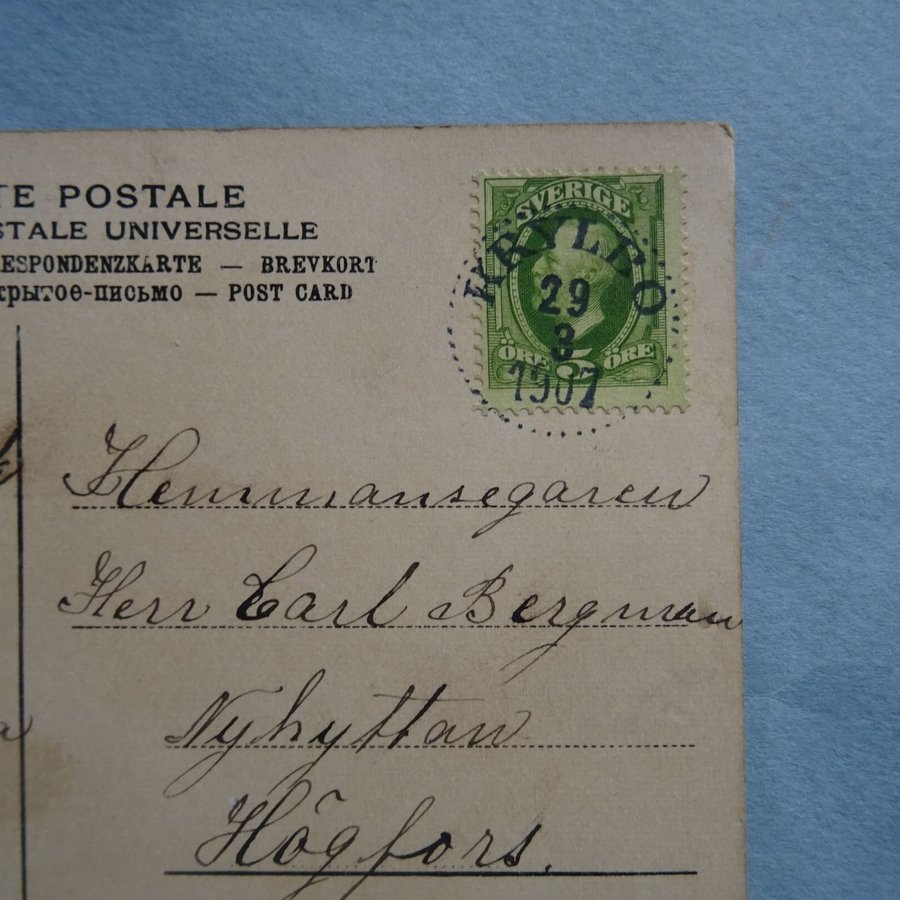 TE POSTALE
STALE UNIVERSELLE
RESPONDENZKARTE — BREVKORT
трытоѳ-письмо — POST CARD
SVERIGE
KRYLBO
29
3
1907
ÖRE 5 ÖRE
Hemmansegaren
Herr Carl Bergman
Nyhyttan
Högfors.